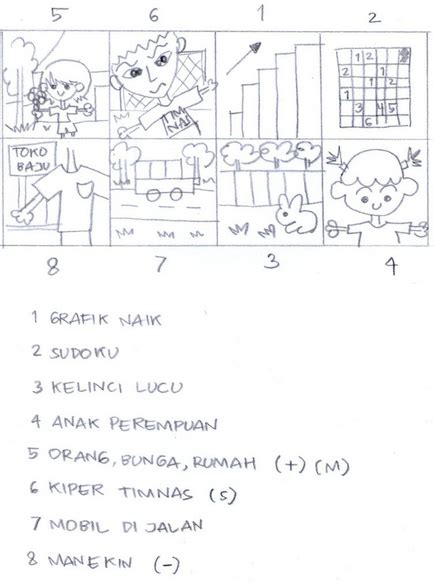 5 6 1 2
TIM
NAS
1 2
2 1
1 2
1
3 4 5
6
TOKO
BAJU
8 7 3 4
1 GRAFIK NAIK
2 SUDOKU
3 KELINCI LUCU
4 ANAK PEREMPUAN
5 ORANG, BUNGA, RUMAH (+) (M)
6 KIPER TIMNAS (S)
7 MOBIL DI JALAN
8 MANEKIN (-)